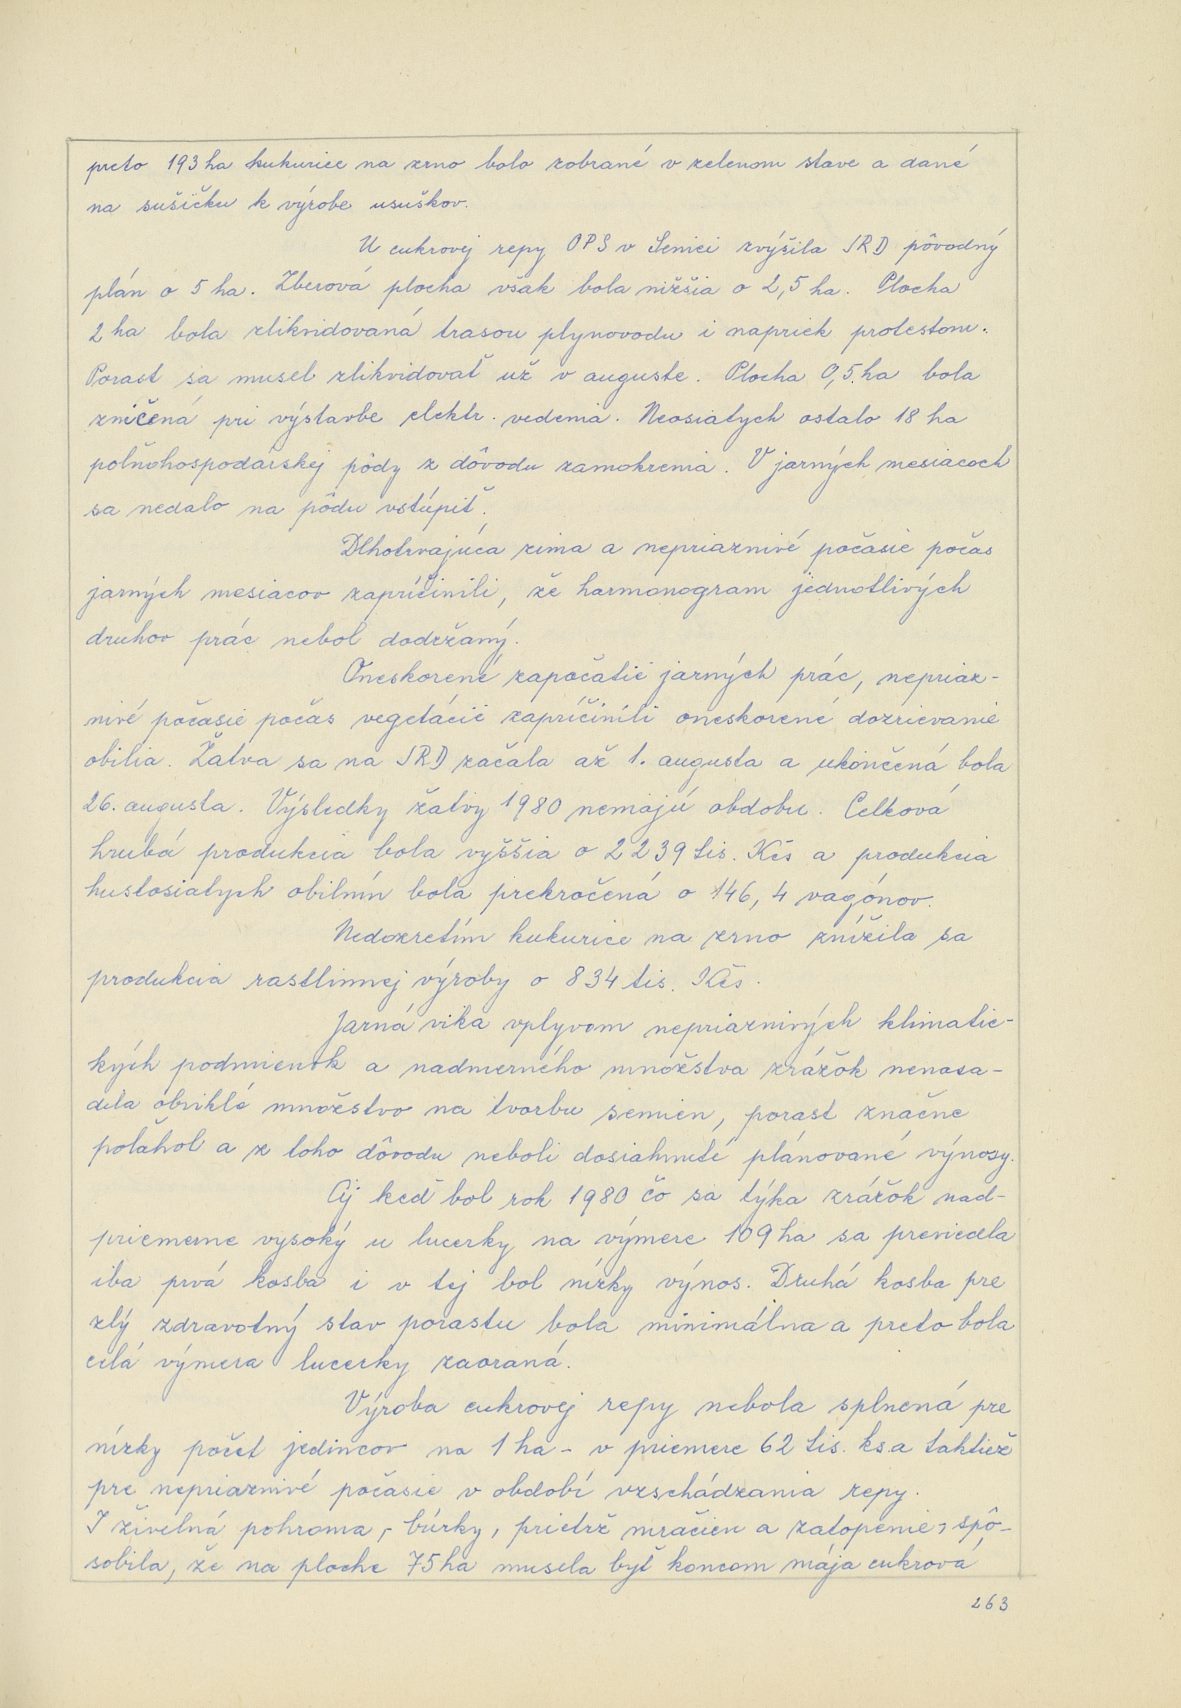 preto 193 ha kukurice na zrno bolo zobrané v zelenom stave a dané
na sušičku k výrobe usuškov.
U cukrovej repy OPS v Senici zvýšila JRD pôvodný
plán o 5 ha. Zberová plocha však bola nižšia o 2,5 ha. Plocha
2 ha bola zlikvidovaná trasou plynovodu i napriek protestom.
Porast sa musel zlikvidovať už v auguste. Plocha 0,5 ha bola
zničená pri výstavbe elektr. vedenia. Neosiatych ostalo 18 ha
poľnohospodárskej pôdy z dôvodu zamokrenia. V jarných mesiacoch
sa nedalo na pôdu vstúpiť.
Dlhotrvajúca zima a nepriaznivé počasie počas
jarných mesiacov zapríčinili, že harmonogram jednotlivých
druhov prác nebol dodržaný.
Oneskorené započatie jarných prác, nepriaz-
nivé počasie počas vegetácie zapríčinili oneskorené dozrievanie
obilia. Žatva sa na JRD začala až 1. augusta a ukončená bola
26. augusta. Výsledky žatvy 1980 nemajú obdobu. Celková
hrubá produkcia bola vyššia o 2239 tis. Kčs a produkcia
hustosiatych obilnín bola prekročená o 146,4 vagónov.
Nedozretím kukurice na zrno znížila sa
produkcia rastlinnej výroby o 834 tis. Kčs.
Jarná vika vplyvom nepriaznivých klimatic-
kých podmienok a nadmerného množstva zrážok nenasa-
dila obvyklé množstvo na tvorbu semien, porast značne
poľahol a z toho dôvodu neboli dosiahnuté plánované výnosy.
Aj keď bol rok 1980 čo sa týka zrážok nad-
priemerne vysoký u lucerky na výmere 109 ha sa previedla
iba prvá kosba i v tej bol nízky výnos. Druhá kosba pre
zlý zdravotný stav porastu bola minimálna a preto bola
celá výmera lucerky zaoraná.
Výroba cukrovej repy nebola splnená pre
nízky počet jedincov na 1 ha - v priemere 62 tis. ks. a taktiež
pre nepriaznivé počasie v období vzchádzania repy.
I živelná pohroma, - búrky, prietrž mračien a zatopenie, spô-
sobila, že na ploche 75 ha musela byť koncom mája cukrová
263